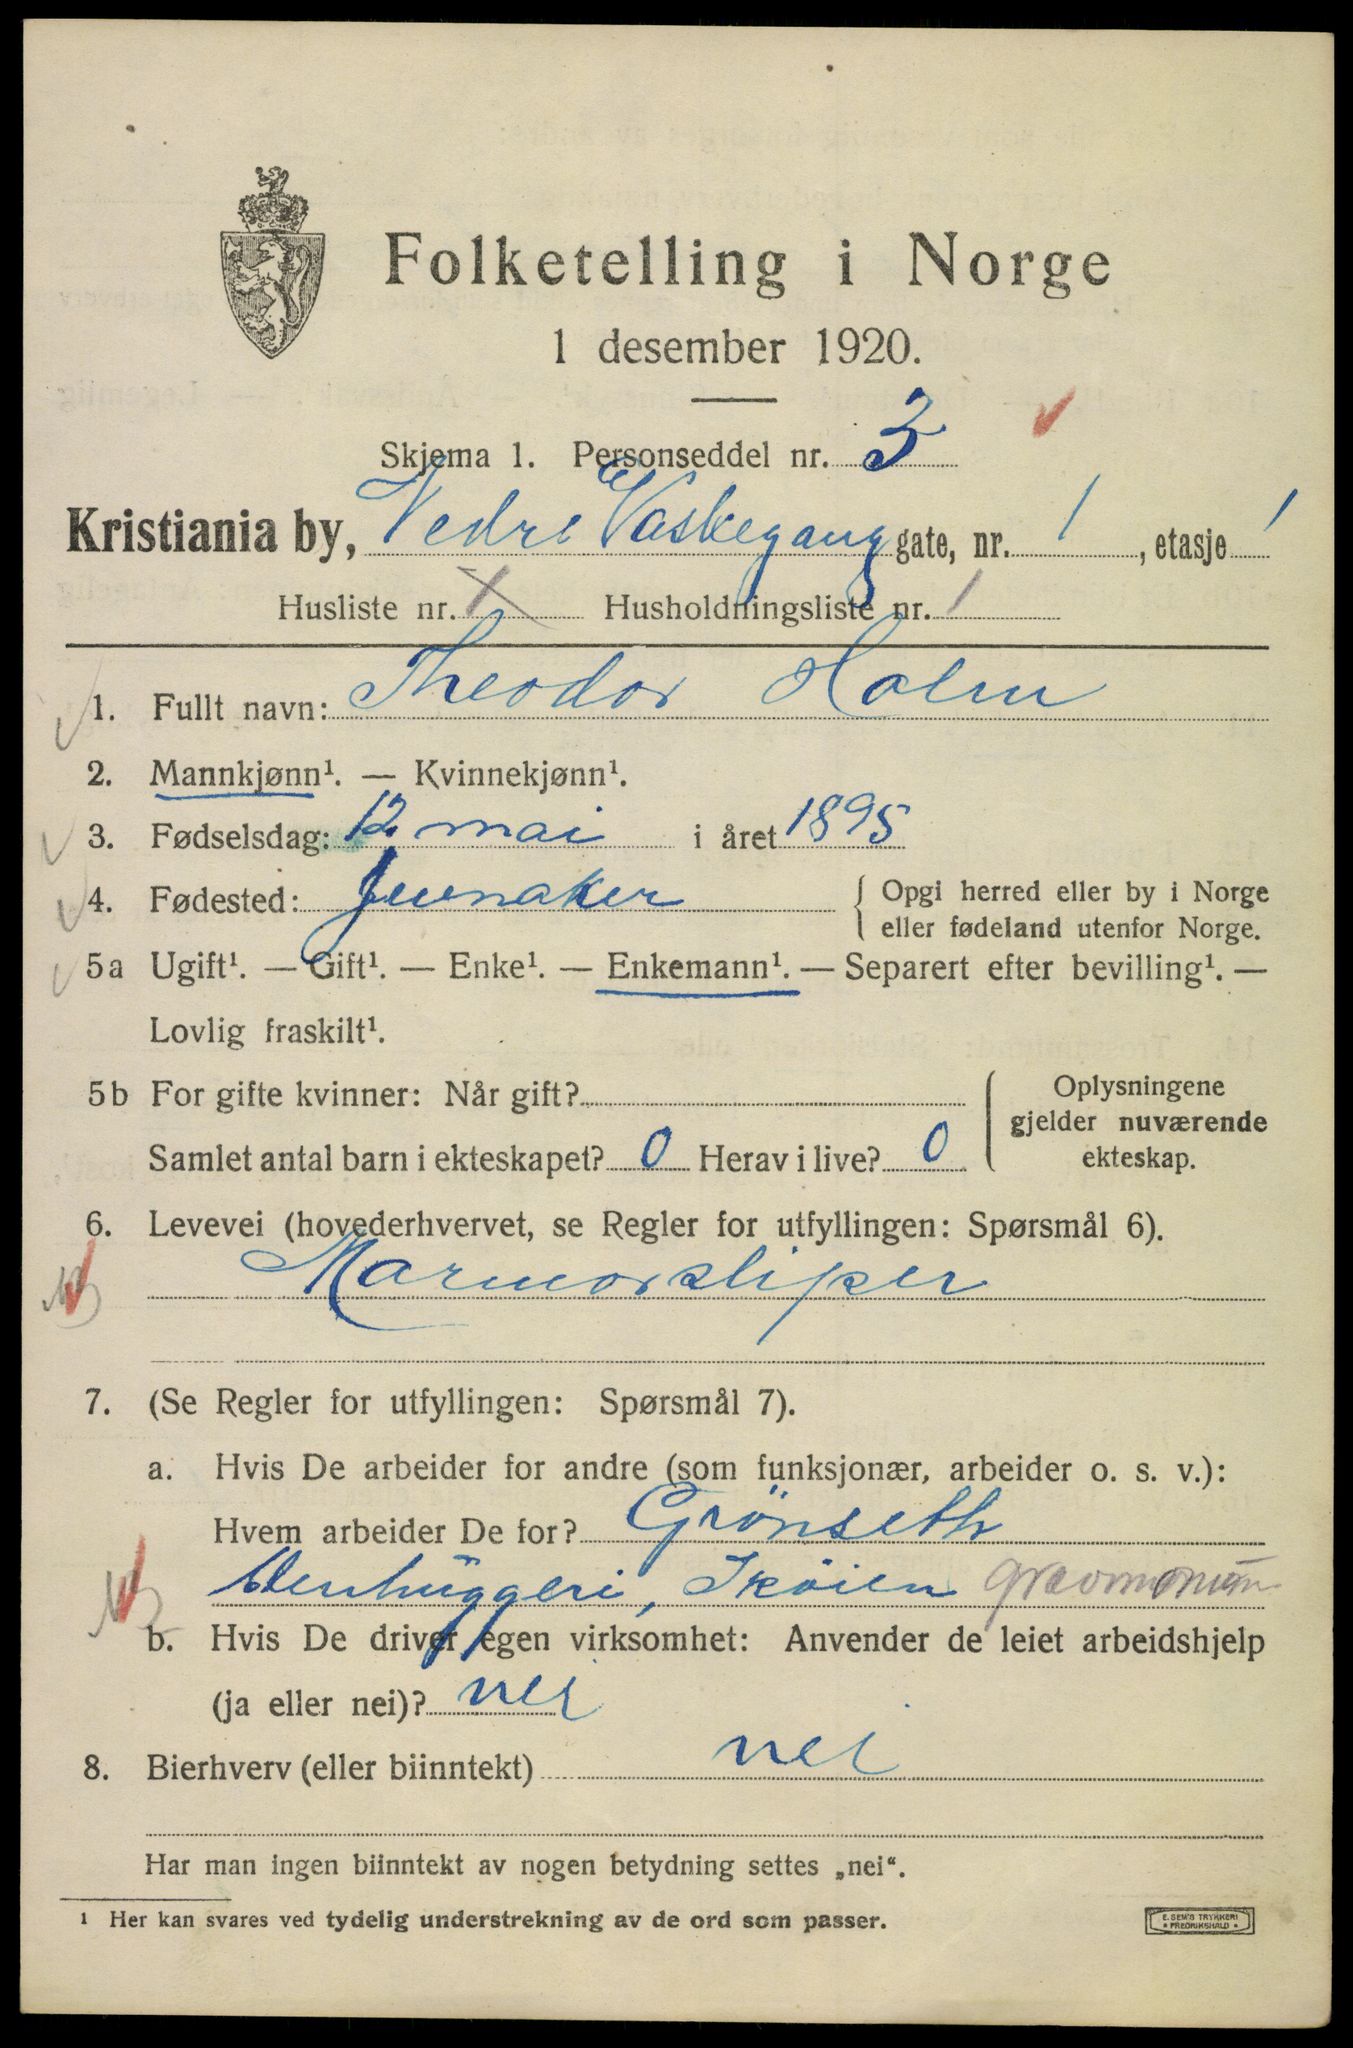 Folketelling i Norge
1 desember 1920.
Skjema 1. Personseddel nr. 3
Kristiania by, Nedre Vaskegang gate, nr. 1, etasje 1
Husliste nr. 1 Husholdningsliste nr. 1
1. Fullt navn: Theodor Holm
2. Mannkjønn¹. — Kvinnekjønn¹.
3. Fødselsdag: 12 mai i året 1895
4. Fødested: Jevnaker { Opgi herred eller by i Norge
eller fødeland utenfor Norge.
5a Ugift¹. — Gift¹. — Enke¹. — Enkemann¹. — Separert efter bevilling¹. —
Lovlig fraskilt¹.
5b For gifte kvinner: Når gift? { Oplysningene
gjelder nuværende
Samlet antal barn i ekteskapet? 0 Herav i live? 0
ekteskap.
6. Levevei (hovederhvervet, se Regler for utfyllingen: Spørsmål 6).
Marmorsliper
7. (Se Regler for utfyllingen: Spørsmål 7).
a. Hvis De arbeider for andre (som funksjonær, arbeider o. s. v.):
Hvem arbeider De for? Grönseth
Stenhuggeri, Skøien gravmonum
b. Hvis De driver egen virksomhet: Anvender de leiet arbeidshjelp
(ja eller nei)? nei
8. Bierhverv (eller biinntekt) nei
Har man ingen biinntekt av nogen betydning settes „nei“.
1 Her kan svares ved tydelig understrekning av de ord som passer.
E. SEM'S TRYKKERI
FREDRIKSHALD